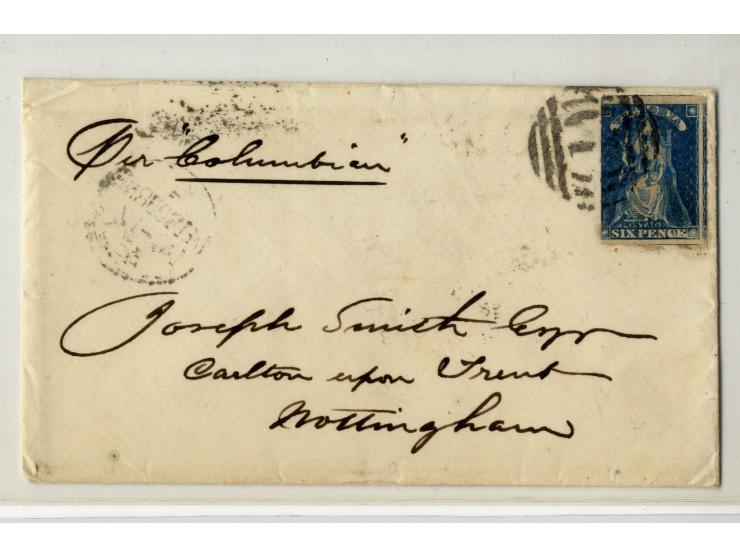 Per "Columbian"
VICTORIA
POSTAGE
SIX PENCE
Joseph Smith Esqr
Carlton upon Trent
Nottingham